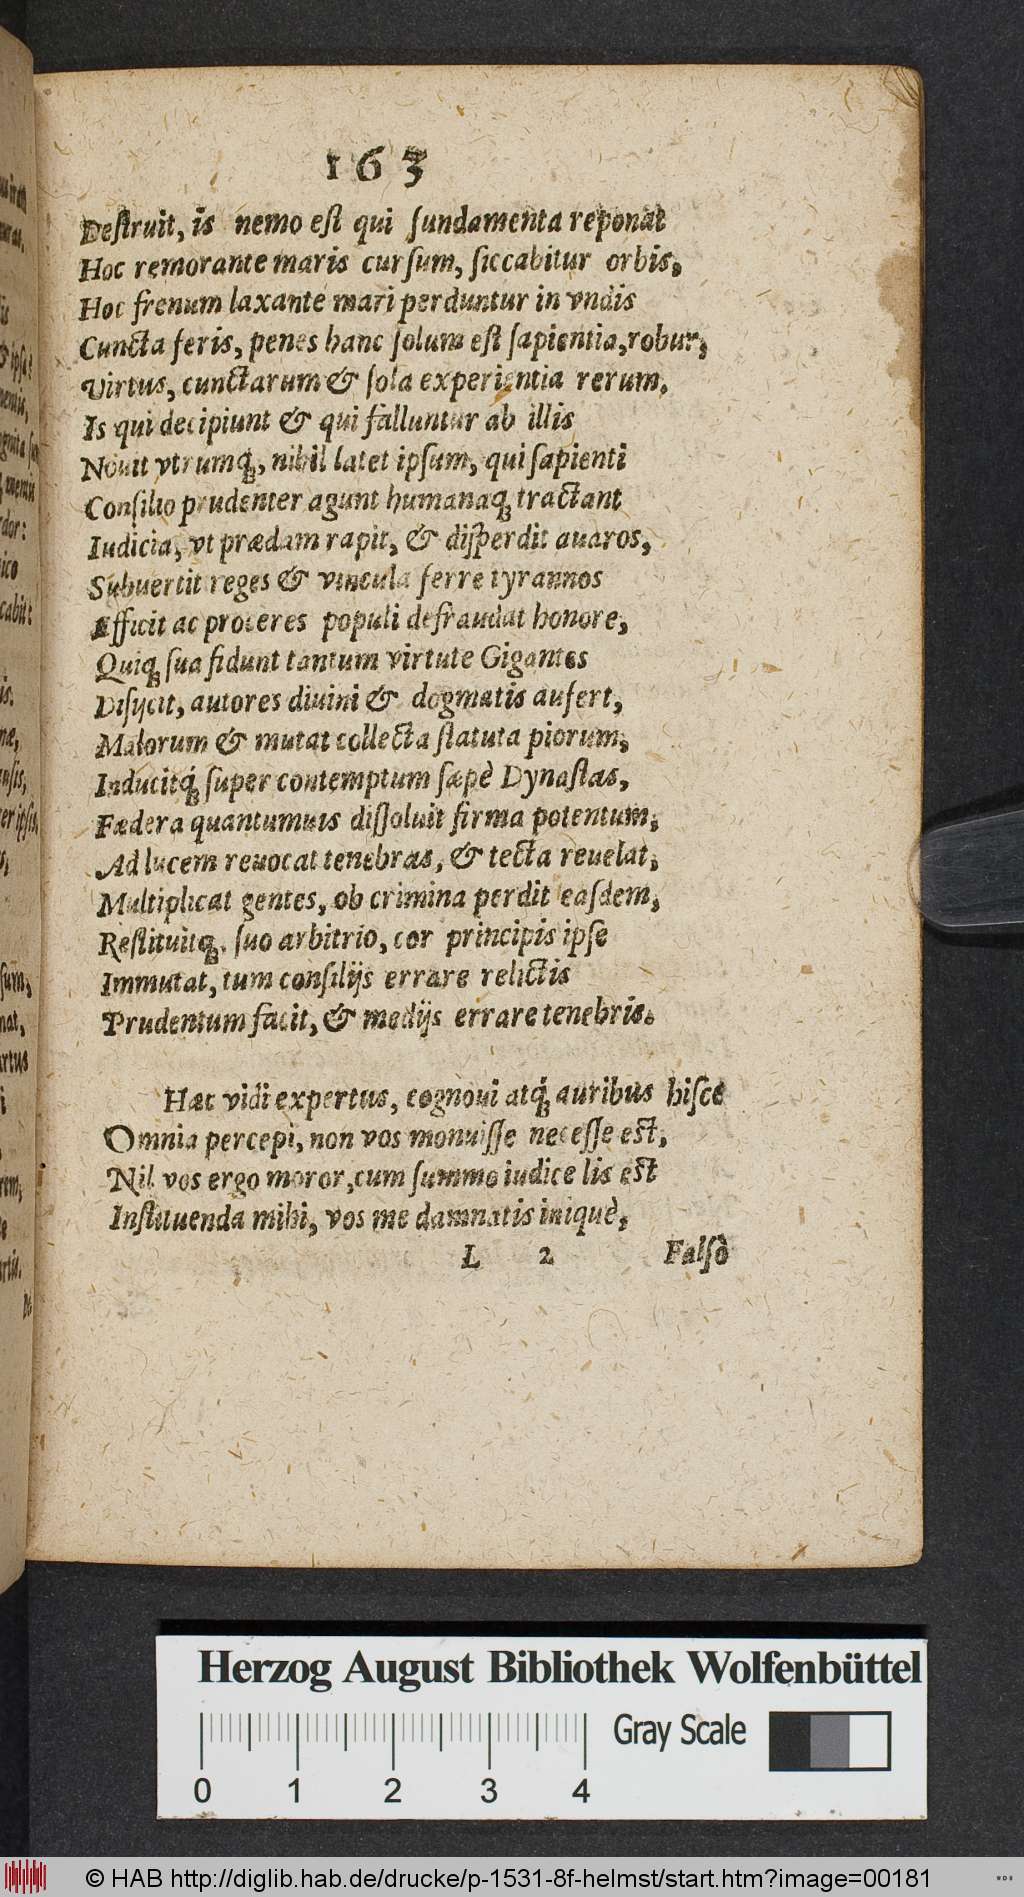 163
Deſtruit, is nemo eſt qui fundamenta reponat
Hoc remorante maris curſum, ſiccabitur orbis,
Hoc frenum laxante mari perduntur in vndis
Cuncta feris, penes hanc ſolum eſt ſapientia, robur,
Virtus, cunctarum & ſola experientia rerum.
Is qui decipiunt & qui falluntur ab illis
Nouit vtrumq́;, nihil latet ipſum, qui ſapienti
Conſilio prudenter agunt humanaq; tractant
Iudicia, vt prædam rapit, & diſperdit auaros,
Subuertit reges & vincula ferre tyrannos
Efficit ac proceres populi defraudat honore,
Quiq; ſua fidunt tantum virtute Gigantes
Diſijcit, autores diuini & dogmatis aufert,
Maiorum & mutat collecta ſtatuta piorum,
Inducitq́; ſuper contemptum ſæpè Dynaſtas,
Fædera quantumuis diſſoluit firma potentum,
Ad lucem reuocat tenebras, & tecta reuelat,
Multiplicat gentes, ob crimina perdit eaſdem,
Reſtituitq; ſuo arbitrio, cor principis ipſe
Immutat, tum conſilijs errare relictis
Prudentum facit, & medijs errare tenebris.
Hæc vidi expertus, cognoui atq́; auribus hiſce
Omnia percepi, non vos monuiſſe neceſſe eſt,
Nil vos ergo moror, cum ſummo iudice lis eſt
Inſtituenda mihi, vos me damnatis iniquè,
L 2 Falſò
Herzog August Bibliothek Wolfenbüttel
Gray Scale
0 1 2 3 4
© HAB http://diglib.hab.de/drucke/p-1531-8f-helmst/start.htm?image=00181